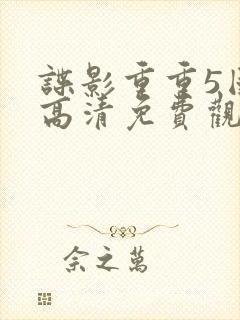 諜影重重5国
高清免費觀
佘之萬